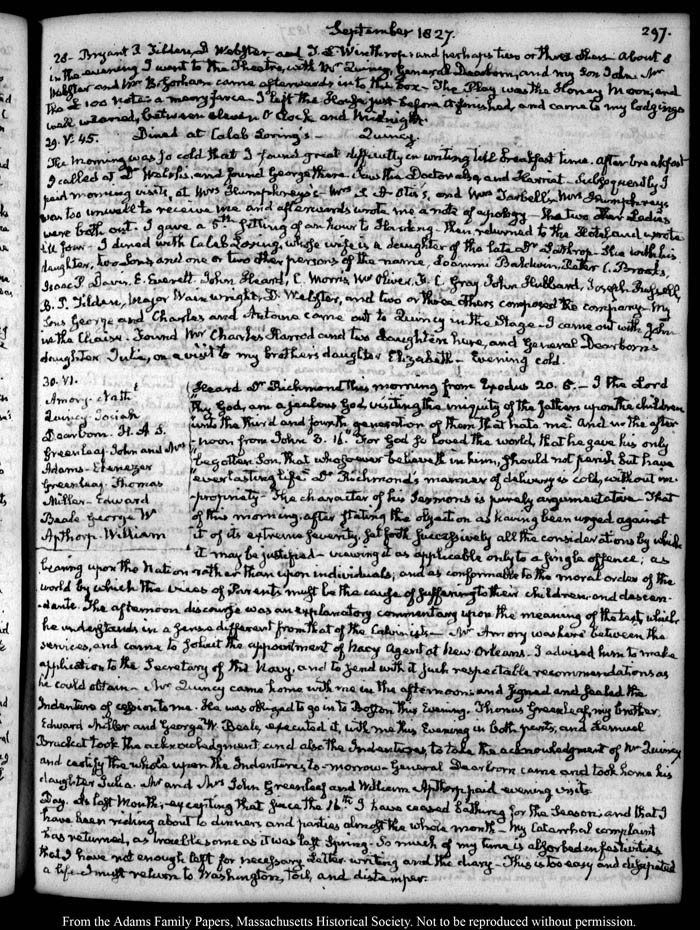 September 1827.
297.
28- Bryant P. Tilden, D Webster and T. L. Winthrop and perhaps two or three others- About 8
in the evening I went to the Theatre, with Mr Quincy, General Dearborn, and my Son John. Mr
Webster and Mr B. Gorham came afterwards into the box- The Play was the Honey Moon, and
the £ 100 note: a merry farce. I left the House just before it finished, and came to my lodgings
well wearied, between eleven O'Clock and Midnight.
29. V. 45. Dined at Caleb Loring's- Quincy.
The Morning was so cold that I found great difficulty in writing till breakfast time. After breakfast
I called at Dr Welsh's, and found George there. Saw the Doctor also, and Harriet- Subsequently I
paid morning visits, at Mrs Humphreys's- Mrs H. G. Otis's, and Mrs Tarbell. Mrs Humphreys
was too unwell to receive me and afterwards wrote me a note of apology- the two other Ladies
were both out. I gave a 5th sitting of an hour to Harding- then returned to the Hotel and wrote
till four- I dined with Caleb Loring, whose wife is a daughter of the late Dr Lathrop- He with his
daughter, two Sons, and one or two other persons of the name, Loammi Baldwin, Peter C. Brooks,
Isaac P. Davis, E. Everett, John Heard, C. Morris, Mr Oliver, F. C. Gray, John Hubbard, Joseph Russell,
B. P. Tilden, Major Wainwright, D. Webster, and two or three others composed the company- My
Sons George and Charles and Antoine came out to Quincy in the Stage- I came out with John
in the Chaise. Found Mrs Charles Harrod and two daughters here, and General Dearborn's
daughter Julia, on a visit to my brothers daughter Elizabeth- Evening cold.
30. VI.
Amory- Nath l
Quincy- Josiah
Dearborn. H. A. S.
Greenleaf- John and Mrs
Adams- Ebenezer
Greenleaf- Thomas
Miller- Edward
Beale- George W
Apthorp. William
Heard Dr Richmond this morning from Exodus 20. 5.- I the Lord
"thy God, am a jealous God, visiting the iniquity of the fathers upon the children
"unto the third and fourth generation of them that hate me" And in the after-
-noon from John 3. 16. "For God so loved the world, that he gave his only
"begotten Son, that whosoever believeth in him, should not perish but have
"everlasting life" Dr Richmond's manner of delivery is cold, without im-
-propriety- The character of his Sermons is purely argumentative- That
of this morning, after stating the objection as having been urged against
it of its extreme severity, set forth successively all the considerations by which
it may be justified- viewing it as applicable only to a single offence; as
bearing upon the Nation rather than upon individuals, and as conformable to the moral order of the
world by which the vices of Parents must be the cause of suffering to their children and descen-
-dents. The afternoon discourse was an explanatory commentary upon the meaning of the text, which
he understands in a sense different from that of the Calvinists- Mr Amory was here between the
services, and came to solicit the appointment of Navy Agent at New Orleans- I advised him to make
application to the Secretary of the Navy, and to send with it such respectable recommendations as
he could obtain- Mr Quincy came home with me in the afternoon and signed and sealed the
Indenture of cession to me. He was obliged to go in to Boston this Evening. Thomas Greenleaf, my brother,
Edward Miller and George W. Beale, executed it, with me this Evening in both parts, and Lemuel
Brackett took the acknowledgment, and also the Indentures to take the acknowledgment of Mr Quincy,
and certify the whole upon the Indentures, to-morrow- General Dearborn came and took home his
daughter Julia. Mr and Mrs John Greenleaf and William Apthorp paid evening visits.
Day. As last Month, excepting that since the 16th I have ceased bathing for the Season, and that I
have been riding about to dinners and parties almost the whole month- My Catarrhal complaint
has returned, as troublesome as it was last Spring. So much of my time is absorbed in festivities
that I have not enough left for necessary Letter writing and the diary- This is too easy and dissipated
a life- I must return to Washington, toil, and distemper.
From the Adams Family Papers, Massachusetts Historical Society. Not to be reproduced without permission.